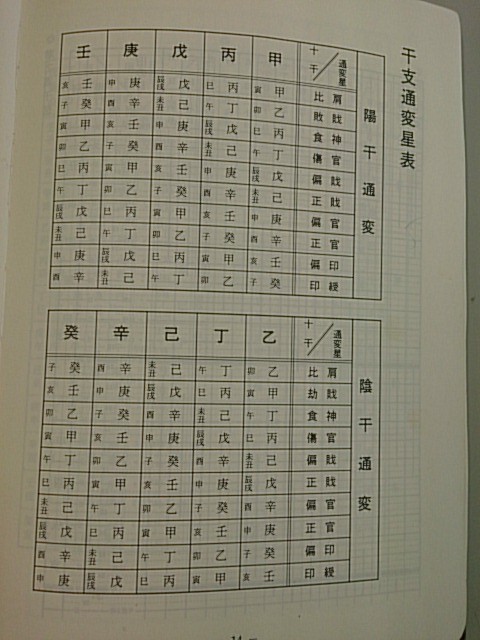 干支通変星表
陽干通変
壬 庚 戊 丙 甲 十干 通変星
亥 壬 申 庚 辰戌 戊 巳 丙 寅 甲 比 肩
子 癸 酉 辛 未丑 己 午 丁 卯 乙 敗 戝
寅 甲 亥 壬 申 庚 辰戌 戊 巳 丙 食 神
卯 乙 子 癸 酉 辛 未丑 己 午 丁 傷 官
巳 丙 寅 甲 亥 壬 申 庚 辰戌 戊 偏 戝
午 丁 卯 乙 子 癸 酉 辛 未丑 己 正 戝
辰戌 戊 巳 丙 寅 甲 亥 壬 申 庚 偏 官
未丑 己 午 丁 卯 乙 子 癸 酉 辛 正 官
申 庚 辰戌 戊 巳 丙 寅 甲 亥 壬 偏 印
酉 辛 未丑 己 午 丁 卯 乙 子 癸 印 綬
陰干通変
癸 辛 己 丁 乙 十干 通変星
子 癸 酉 辛 未丑 己 午 丁 卯 乙 比 肩
亥 壬 申 庚 辰戌 戊 巳 丙 寅 甲 劫 戝
卯 乙 子 癸 酉 辛 未丑 己 午 丁 食 神
寅 甲 亥 壬 申 庚 辰戌 戊 巳 丙 傷 官
午 丁 卯 乙 子 癸 酉 辛 未丑 己 偏 戝
巳 丙 寅 甲 亥 壬 申 庚 辰戌 戊 正 戝
未丑 己 午 丁 卯 乙 子 癸 酉 辛 偏 官
辰戌 戊 巳 丙 寅 甲 亥 壬 申 庚 正 官
酉 辛 未丑 己 午 丁 卯 乙 子 癸 偏 印
申 庚 辰戌 戊 巳 丙 寅 甲 亥 壬 印 綬